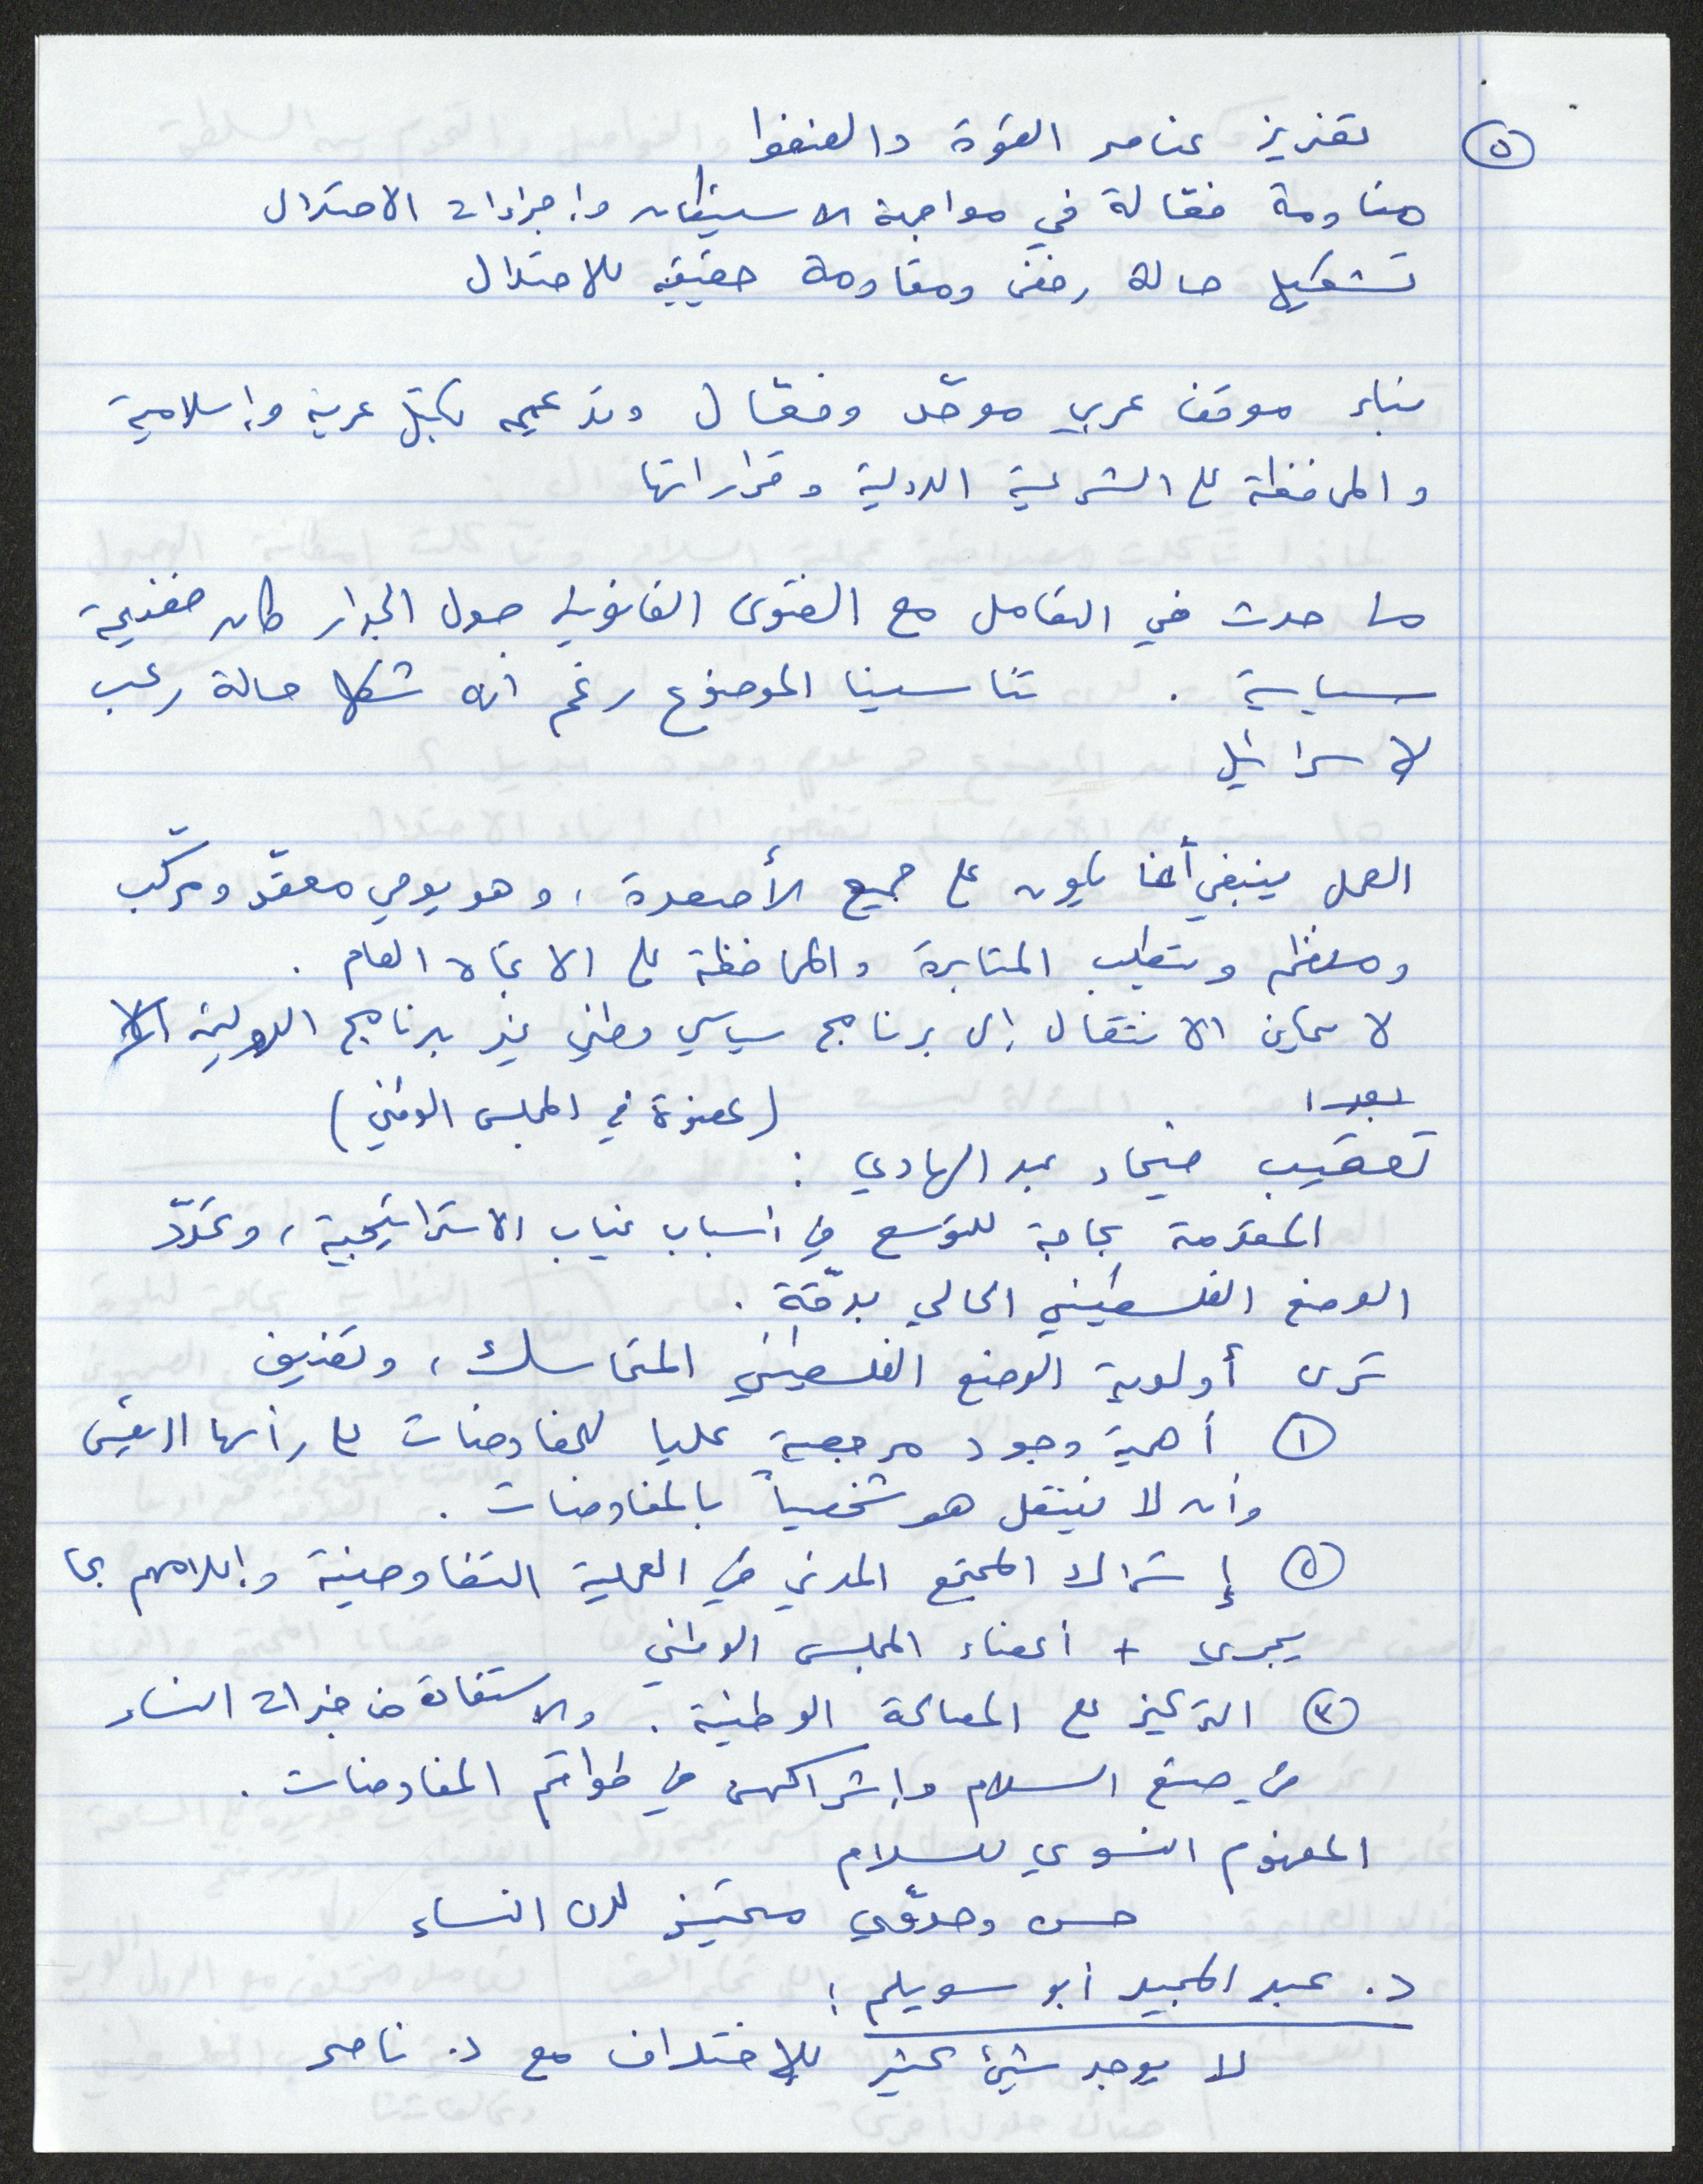 ٥
تعزيز عناصر القوة والضغوط
مقاومة فعّالة في مواجهة الاستيطان وإجراءات الاحتلال
تشكيل حالة رفض ومقاومة حقيقية للاحتلال
بناء موقف عربي موحّد وفعّال وتدعيمه بكتل عربية وإسلامية
والمحافظة على الشرعية الدولية وقراراتها
ما حدث في التعامل مع الفتوى القانونية حول الجدار كان فضيحة
سياسية . تناسينا الموضوع رغم أنه شكل حالة رعب
لاسرائيل
العمل ينبغي أن يكون على جميع الأصعدة، وهو يومي معقّد ومركّب
ومنظم ويتطلب المثابرة والمحافظة على الاتجاه العام .
لا يمكن الانتقال إلى برنامج سياسي وطني غير برنامج الدولتين
بعد
(عضوة في المجلس الوطني)
تعقيب فيحاء عبد الهادي :
المقدمة بحاجة للتوسع في أسباب غياب الاستراتيجية، وتحدّد
الوضع الفلسطيني الحالي بدقّة .
ترى أولوية الوضع الفلسطيني المتماسك، وتضيف
١ أهمية وجود مرجعية عليا للمفاوضات على رأسها الرئيس
وأن لا ينتقل هو شخصياً بالمفاوضات .
٢ إشراك المجتمع المدني في العملية التفاوضية وإعلامهم بما
يجري + أعضاء المجلس الوطني
٣ التركيز على المصالحة الوطنية . والاستفادة من خبرات النساء
في صنع السلام وإشراكهن في طواقم المفاوضات .
المفهوم النسوي للسلام
حس وحدوّي متميّز لدى النساء
د. عبد المجيد أبو سويلم :
لا يوجد شيئ كثير للإختلاف مع د. ناصر